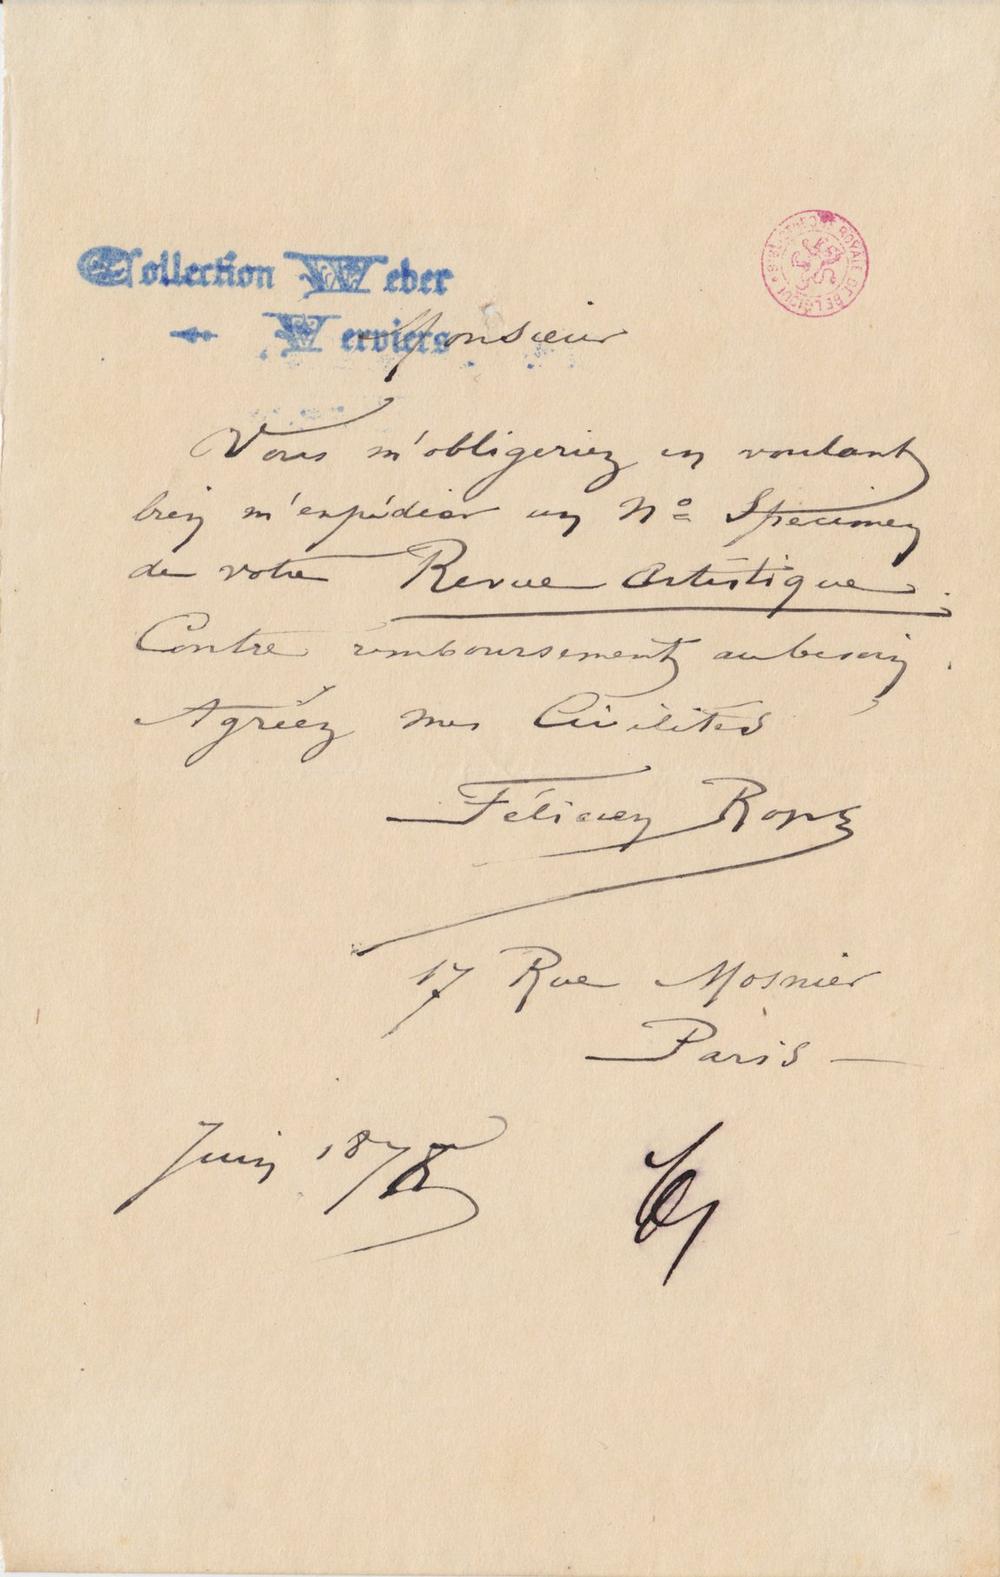 Collection Weber
Verviers
BIBLIOTHÈQUE ROYALE DE BELGIQUE
Monsieur
Vous m'obligeriez en voulant
bien m'expédier un Nº Specimen
de votre Revue Artistique.
Contre remboursement au besoin.
Agréez mes Civilités
Félicien Rops
17 Rue Mosnier
Paris —
Juin 1878